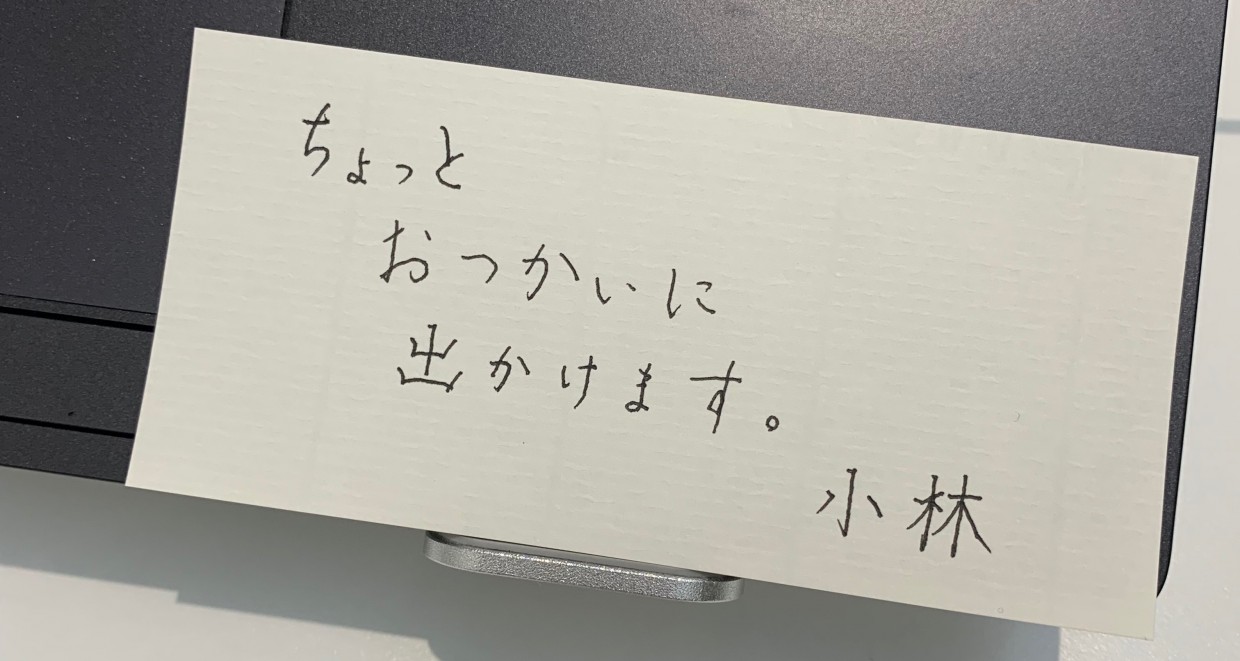 ちょっと
おつかいに
出かけます。
小林